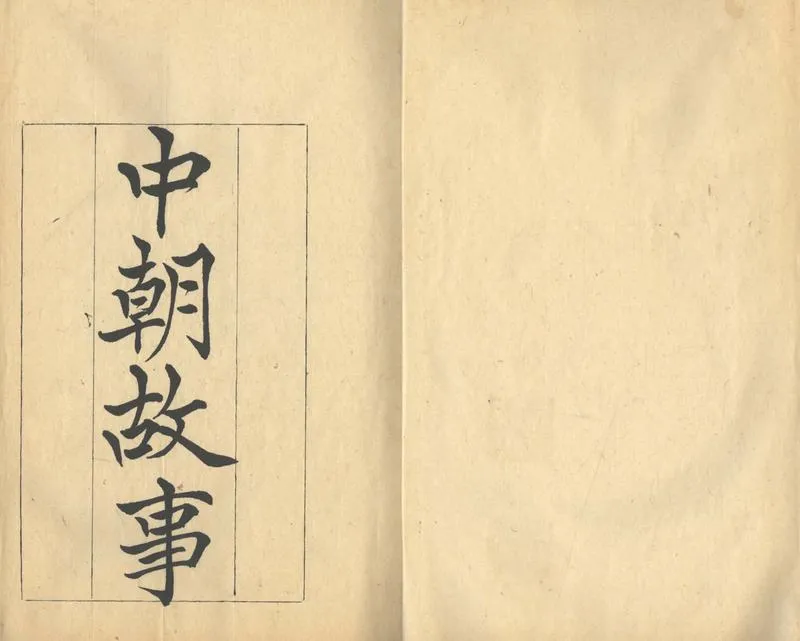 中朝故事